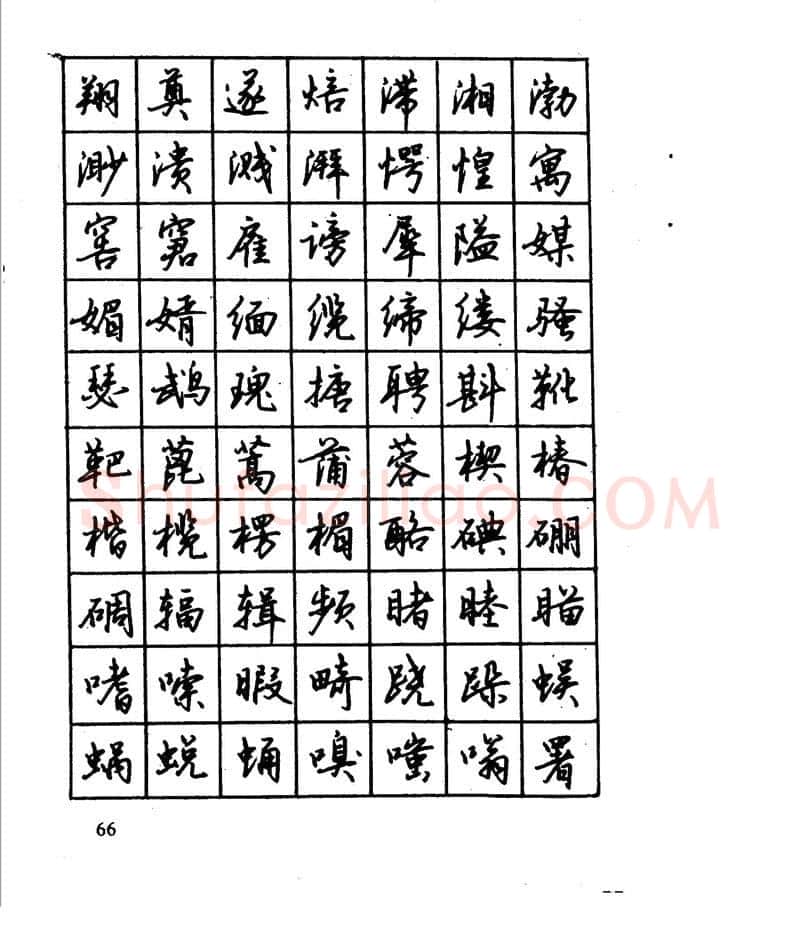 翔 奠 遂 焙 滞 湘 渤
渺 溃 溅 湃 愕 惶 寓
窖 窘 雇 谤 犀 隘 媒
媚 婿 缅 缆 缔 缕 骚
瑟 鹉 瑰 搪 聘 斟 靴
靶 蓖 蒿 蒲 蓉 楔 椿
楷 榄 楞 楣 酪 碘 硼
碉 辐 辑 频 睹 睦 瞄
嗜 嗦 暇 畸 跷 跺 蜈
蜗 蜕 蛹 嗅 嗤 嗡 署
66
Shufaziliao.COM